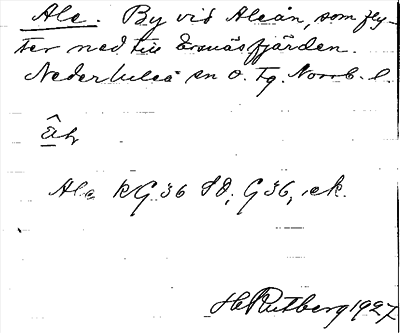 Ale. By vid Aleån, som fly-
ter ned till Ersnäsfjärden.
Nederluleå sn o. tg. Norrb. l.
Ale KG 36 SO, G 36, ek.
H Rutberg 1927